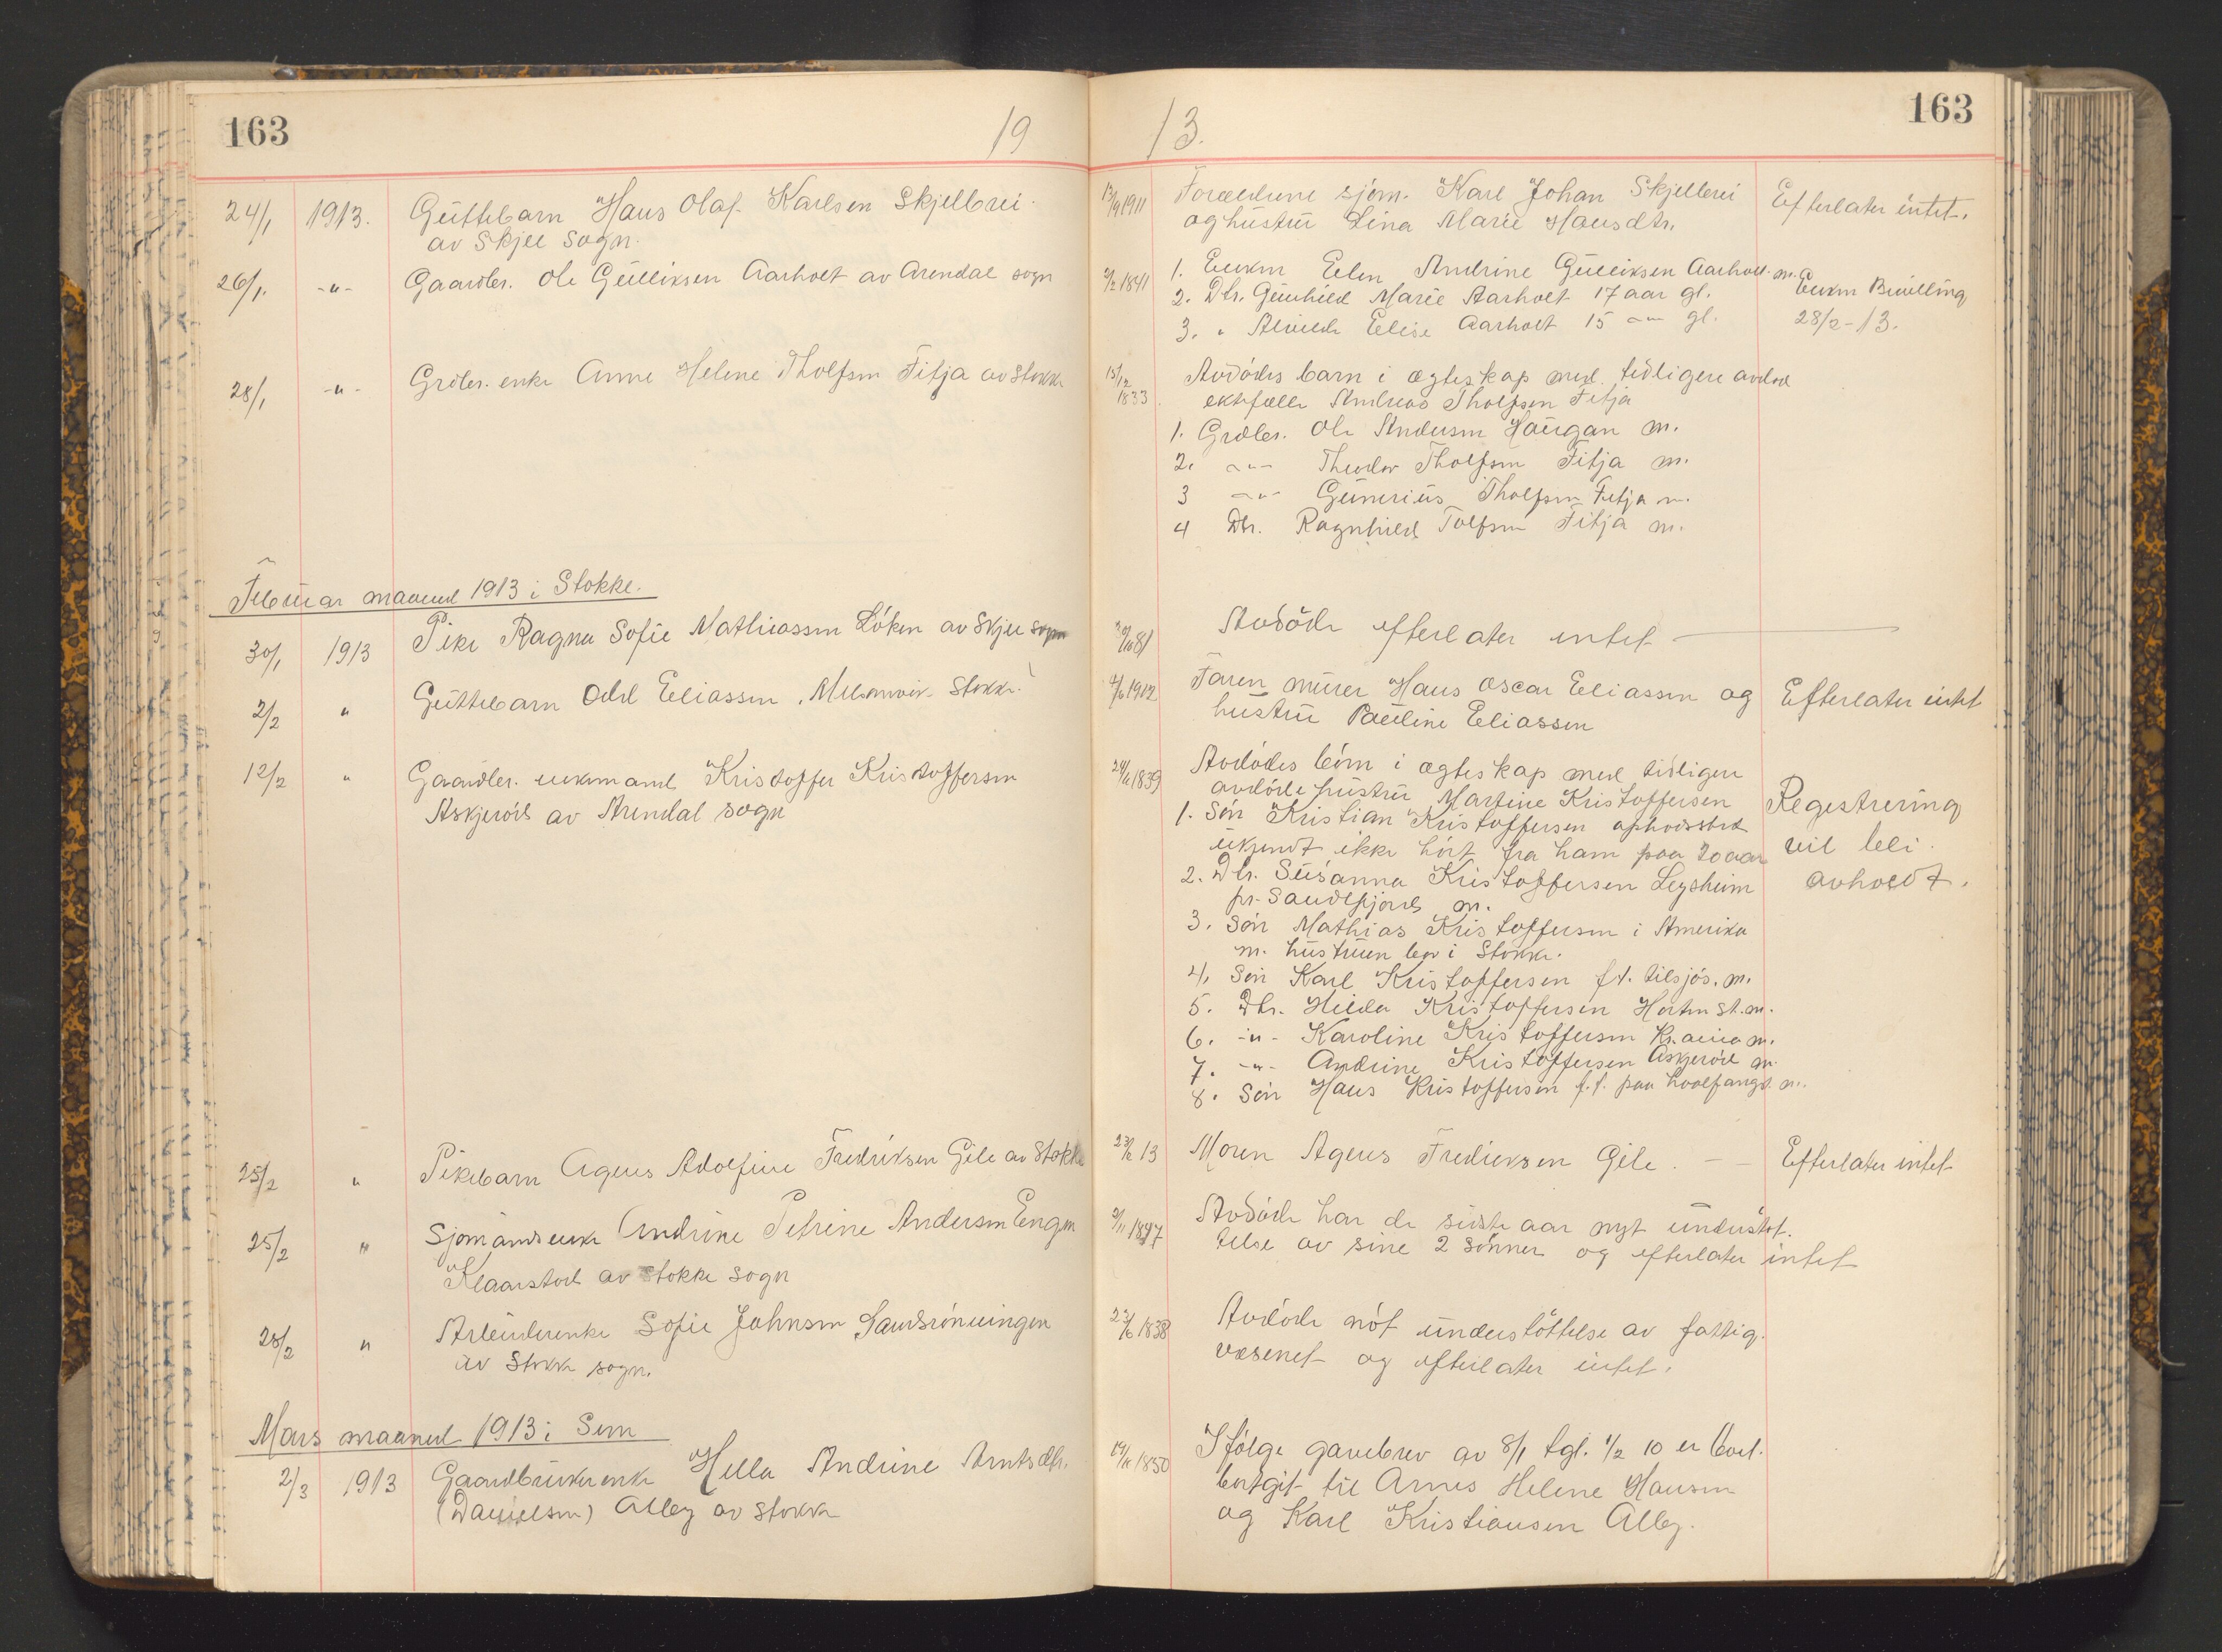 163
19
13.
163
24/1 1913. Guttebarn Hans Olaf Karlsen Skjelbrei
av Skjee Sogn.
13/4 1911 Foreldrene sjøm. Karl Johan Skjelbrei
og hustru Lina Marie Hansdtr.
Efterlater intet.
26/1. -"- Gaardbr. Ole Gulliksen Aarholt av Arendal sogn
2/2 1841
1. Enken Elen Andrine Gulliksen Aarholt m.
2. Dtr. Gunhild Marie Aarholt 17 aar gl.
3. " Alvilde Elise Aarholt 15 -"- gl.
Enken Bevilling
28/2-13.
28/1 -"- Grdbr. enke Anne Helene Tholfsen Fitja av Stokke
15/12 1833
Avdødes barn i ægteskap med tidligere avdød
ektefælle Andreas Tholfsen Fitja
1. Grdbr. Ole Andersen Haugan m.
2. -"- Theodor Tholfsen Fitja m.
3 -"- Gunerius Tholfsen Fitja m.
4 Dtr. Ragnhild Tolfsen Fitja m.
Februar maaned 1913 i Stokke.
30/1 1913 Pike Ragna Sofie Mathiassen Løken av Skjee sogn
Avdøde efterlater intet
2/2 " Guttebarn Odd Eliassen, Melsomvik Stokke.
4/6 1912 Faren murer Hans Oscar Eliassen og
hustru Pauline Eliassen
Efterlater intet
12/2 " Gaardbr. enkemand Kristoffer Kristoffersen
Askjerød av Arendal sogn
24/6 1839
Avdødes børn i ægteskap med tidligere
avdøde hustru Martine Kristoffersen
1. Søn Kristian Kristoffersen opholdssted
ukjendt ikke hørt fra ham paa 20 aar
2. Dtr. Susanna Kristoffersen Lysheim
pr. Sandefjord m.
3. Søn Mathias Kristoffersen i Amerika
m. hustruen bor i Stokke.
4. Søn Karl Kristoffersen f.t. tilsjøs. m.
5. Dtr. Hilda Kristoffersen Horten st. m.
6. -"- Karoline Kristoffersen Kr.ania m.
7. -"- Andrine Kristoffersen Askjerød m.
8. Søn Hans Kristoffersen f.t. paa hvalfangst m.
Registrering
vil bli
avholdt.
25/2 " Pikebarn Agnes Adolfine Fredriksen Gile av Stokke
23/2 13 Moren Agnes Frediksen Gile.
Efterlater intet
25/2 " Sjømandsenke Andrine Petrine Andersen Engen
Klaarstad av Stokke sogn
9/11 1847 Avdøde har de sidste aar nyt understøt-
telse av sine 2 sønner og efterlater intet
28/2 " Arbeiderenke Sofie Johnsen Sandsrønningen
av Stokke sogn.
23/6 1838 Avdøde nøt understøttelse av fattig-
væsenet og efterlater intet.
Mars maaned 1913 i Sem
2/3 1913 Gaardbrukerenke Hella Andrine Arntsdtr.
(Danielsen) Alby av Stokke
19/11 1850 Ifølge gavebrev av 8/1 tgl. 1/2 10 er boet
bortgit til Arnes Helene Hansen
og Karl Kristiansen Alby.